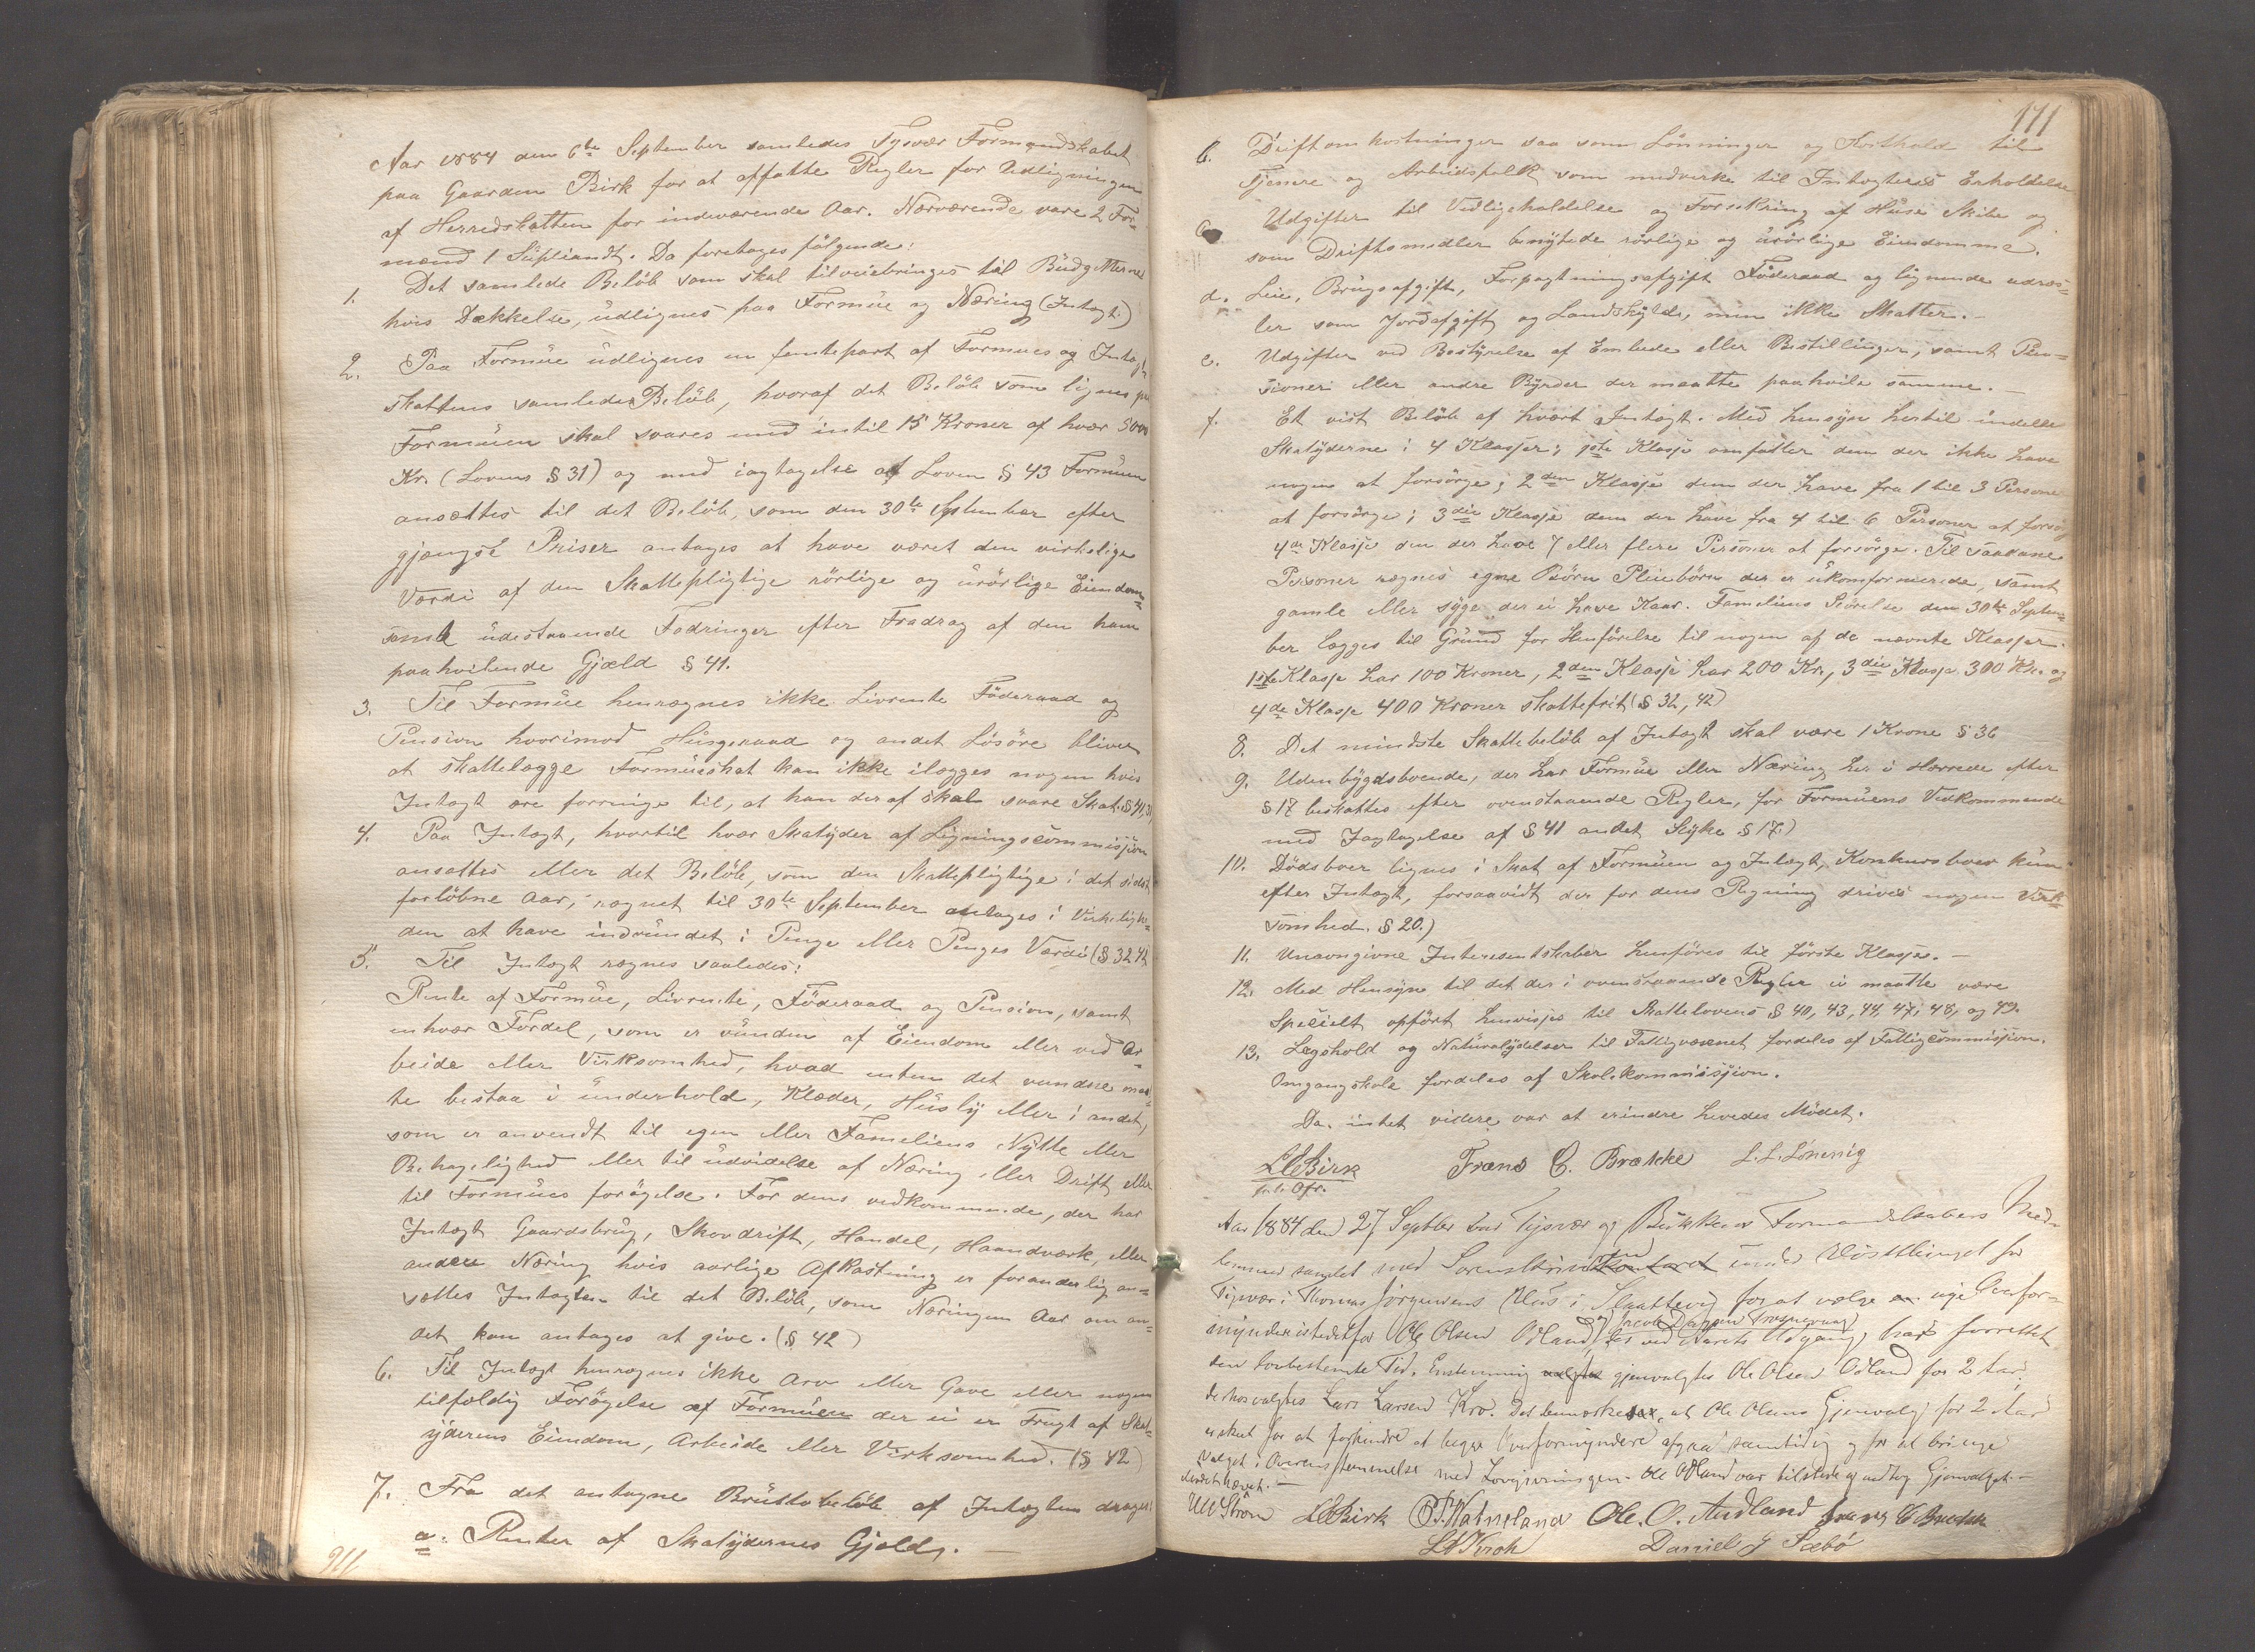 Aar 1884 den 6te September samledes Tysvær Formandskabet
paa Gaarden Birk for at affatte Regler for Udligningen
af Herredskatten for indeværende Aar. Nærværende vare 2 For-
mænd 1 Supliandt. Da foretoges følgende:
1. Det samlede Beløb som skal tilveiebringes til Büdgetternes
hvis Dækkelse, üdlignes paa Formüe og Næring (Intægt.)
2. Paa Formüe üdlignes en femtepart af Formues og Intægt-
skattens samledes Beløb, hvoraf det Beløb som lignes paa
Formüen skal svares med intil 15 Kroner af hver 5000
Kr. (Lovens § 31) og med iagtagelse af Loven § 43 Formüen
ansættes til det Beløb, som den 30te September efter
gjængse Priser antages at have været den virkelige
Værdi af den Skattepligtige rørlige og ürørlige Eiendom-
samt üdestaaende Fodringer efter Fradrag af den ham
paahvilende Gjæld § 41.
3. Til Formüe henregnes ikke Livrente Føderaad og
Pension hvorimod Hüsgeraad og andet Løsøre bliver
at skattelægge Formüeskat kan ikke ilægges nogen hvis
Intægt ere forringe til, at han deraf skal svare Skat. § 41, 31
4. Paa Intægt, hvortil hver Skatyder af Ligningscommisjion
ansættes eller det Beløb, som den Skattepligtige i det sidst
forløbne Aar, regnet til 30te September antages i Virkelighe-
den at have indvündet i Penge eller Penges Værdi (§ 32 42
5. Til Intægt regnes saaledes:
Rente af Formüe, Livrente, Føderaad og Pension, samt
enhver Fordel, som er vünden af Eiendom eller ved Ar-
beide eller Virksomhed, hvad enten det vundne maat-
te bestaa i ünderhold, Klæder, Hüsly eller i andet,
som er anvendt til egen eller Fameliens Nytte eller
Behagelighed eller til üdvidelse af Næring eller Drift eller
til Formües forøgelse. For dens vedkommende, der har
Intægt Gaardsbrüg, Skovdrift, Handel, Haandværk, eller
anden Næring hvis aarlige Afkastning er foranderlig an-
sættes Intægten til det Beløb, som Næringen Aar om an-
det kan antages at give. (§ 42)
6. Til Intægt henregnes ikke Arv eller Gave eller nogen
tilfældig Forøgelse af Formüen der ei er Frugt af Skat-
yderens Eiendom, Arbeide eller Virksomhed. (§ 42)
7. Fra det antagne Brüttobeløb af Intægten drages:
a. Renter af Skatydernes Gjeld. —
171
b. Driftomkostninger saa som Lønninger og Kosthold til
Tjenere og Arbeidsfolk som medvirke til Intægternes Erholdelse
c. Udgifter til Vedligeholdelse og Forsekring af Hüse Skibe og
som Driftsmedler benyttede rørlige og ürørlige Eiendomme.
d. Leie, Brügsafgift, Forpagtningsafgift Føderaad og lignende udræs-
ler som Jordafgift og Landskyld, men ikke Skatter. —
e. Udgifter ved Bestyrelse af Embede eller Bestillinger, samt Pen-
sioner eller andre Byrder der maatte paahvile samme. —
f. Et vist Beløb af hvert Intægt. Med hensyn hertil indelles
Skatyderne i 4 Klasjer; 1ste Klasje omfatter dem der ikke have
nogen at forsørge; 2den Klasje dem der have fra 1 til 3 Personer
at forsørge; 3die Klasje dem der have fra 4 til 6 Personer at forsørge
4de Klasje den der have 7 eller flere Personer at forsørge. Til saadane
Personer regnes egne Børn Pleiebørn der er ükonformerede, samt
gamle eller syge der ei have Kaar. Fameliens Størelse dem 30te Septem-
ber lægges til Gründ for Henførelse til nogen af de nævnte Klasjer.
1ste Klasje har 100 Kroner, 2den Klasje har 200 Kr., 3die Klasje 300 Kr. og
4de Klasje 400 Kroner skattefrit (§ 32, 42)
8. Det mindste Skattebeløb af Intægt skal være 1 Krone § 36
9. Udenbygdsboende, der har Formüe eller Næring her i Herrede efter
§ 17 beskattes efter ovenstaaende Regler, for Formüens Vedkommende
med Iagtagelse af § 41 andet Stÿke § 17.)
10. Dødsboer lignes i Skat af Formüen og Intægt, Konkursboer kün
efter Intægt, forsaavidt der for dens Regning drives nogen Virk-
somhed. § 20.)
11. Unavngivne Interesentskaber henføres til første Klasje. —
12. Med Hensyn til det der i ovenstaaende Regler ei maatte være
Specielt opført henvisjes til Skattelovens § 40, 43, 44, 47, 48, og 49.
13. Lægdhold og Naturalydelser til Fattigvæsenet fordeles af Fattigcommisjion.
Omgangskole fordeles af Skolekommisjion.
Da intet videre var at erindre hevedes Mødet.
L E Birk Frans C. Brække L. L. Lønning
Aar 1884 den 27 Septber var Tysvær og Bukkens Formandskabers Med-
lemmer samlet med Sorenskriveren under Høsttinget for
Tysvær i Thomas Jørgensens Hus i Slaattevig for at vælge nye Overfor-
myndere istedetfor Ole Olsen Odland og Jacob Dagsen
der ved Aarets Udgang har forrettet
den lovbestemte Tid. Enstemmig gjenvalgtes Ole Olsen Odland for 2 Aar,
derhos valgtes Lars Larsen Kro. Det bemærkes, at Ole Olsens Gjenvalg for 2 Aar
er skeet for at forhindre at begge Overformyndere afgaa samtidig og for at bringe
Valget i Overensstemmelse med Lovgivningen. Ole Odland var tilstede og modtog Gjenvalget. —
Mødet hævet. —
L E Birk O. T. Hatneland Ole. O. Audland Frans C Brække
Daniel J Sæbø